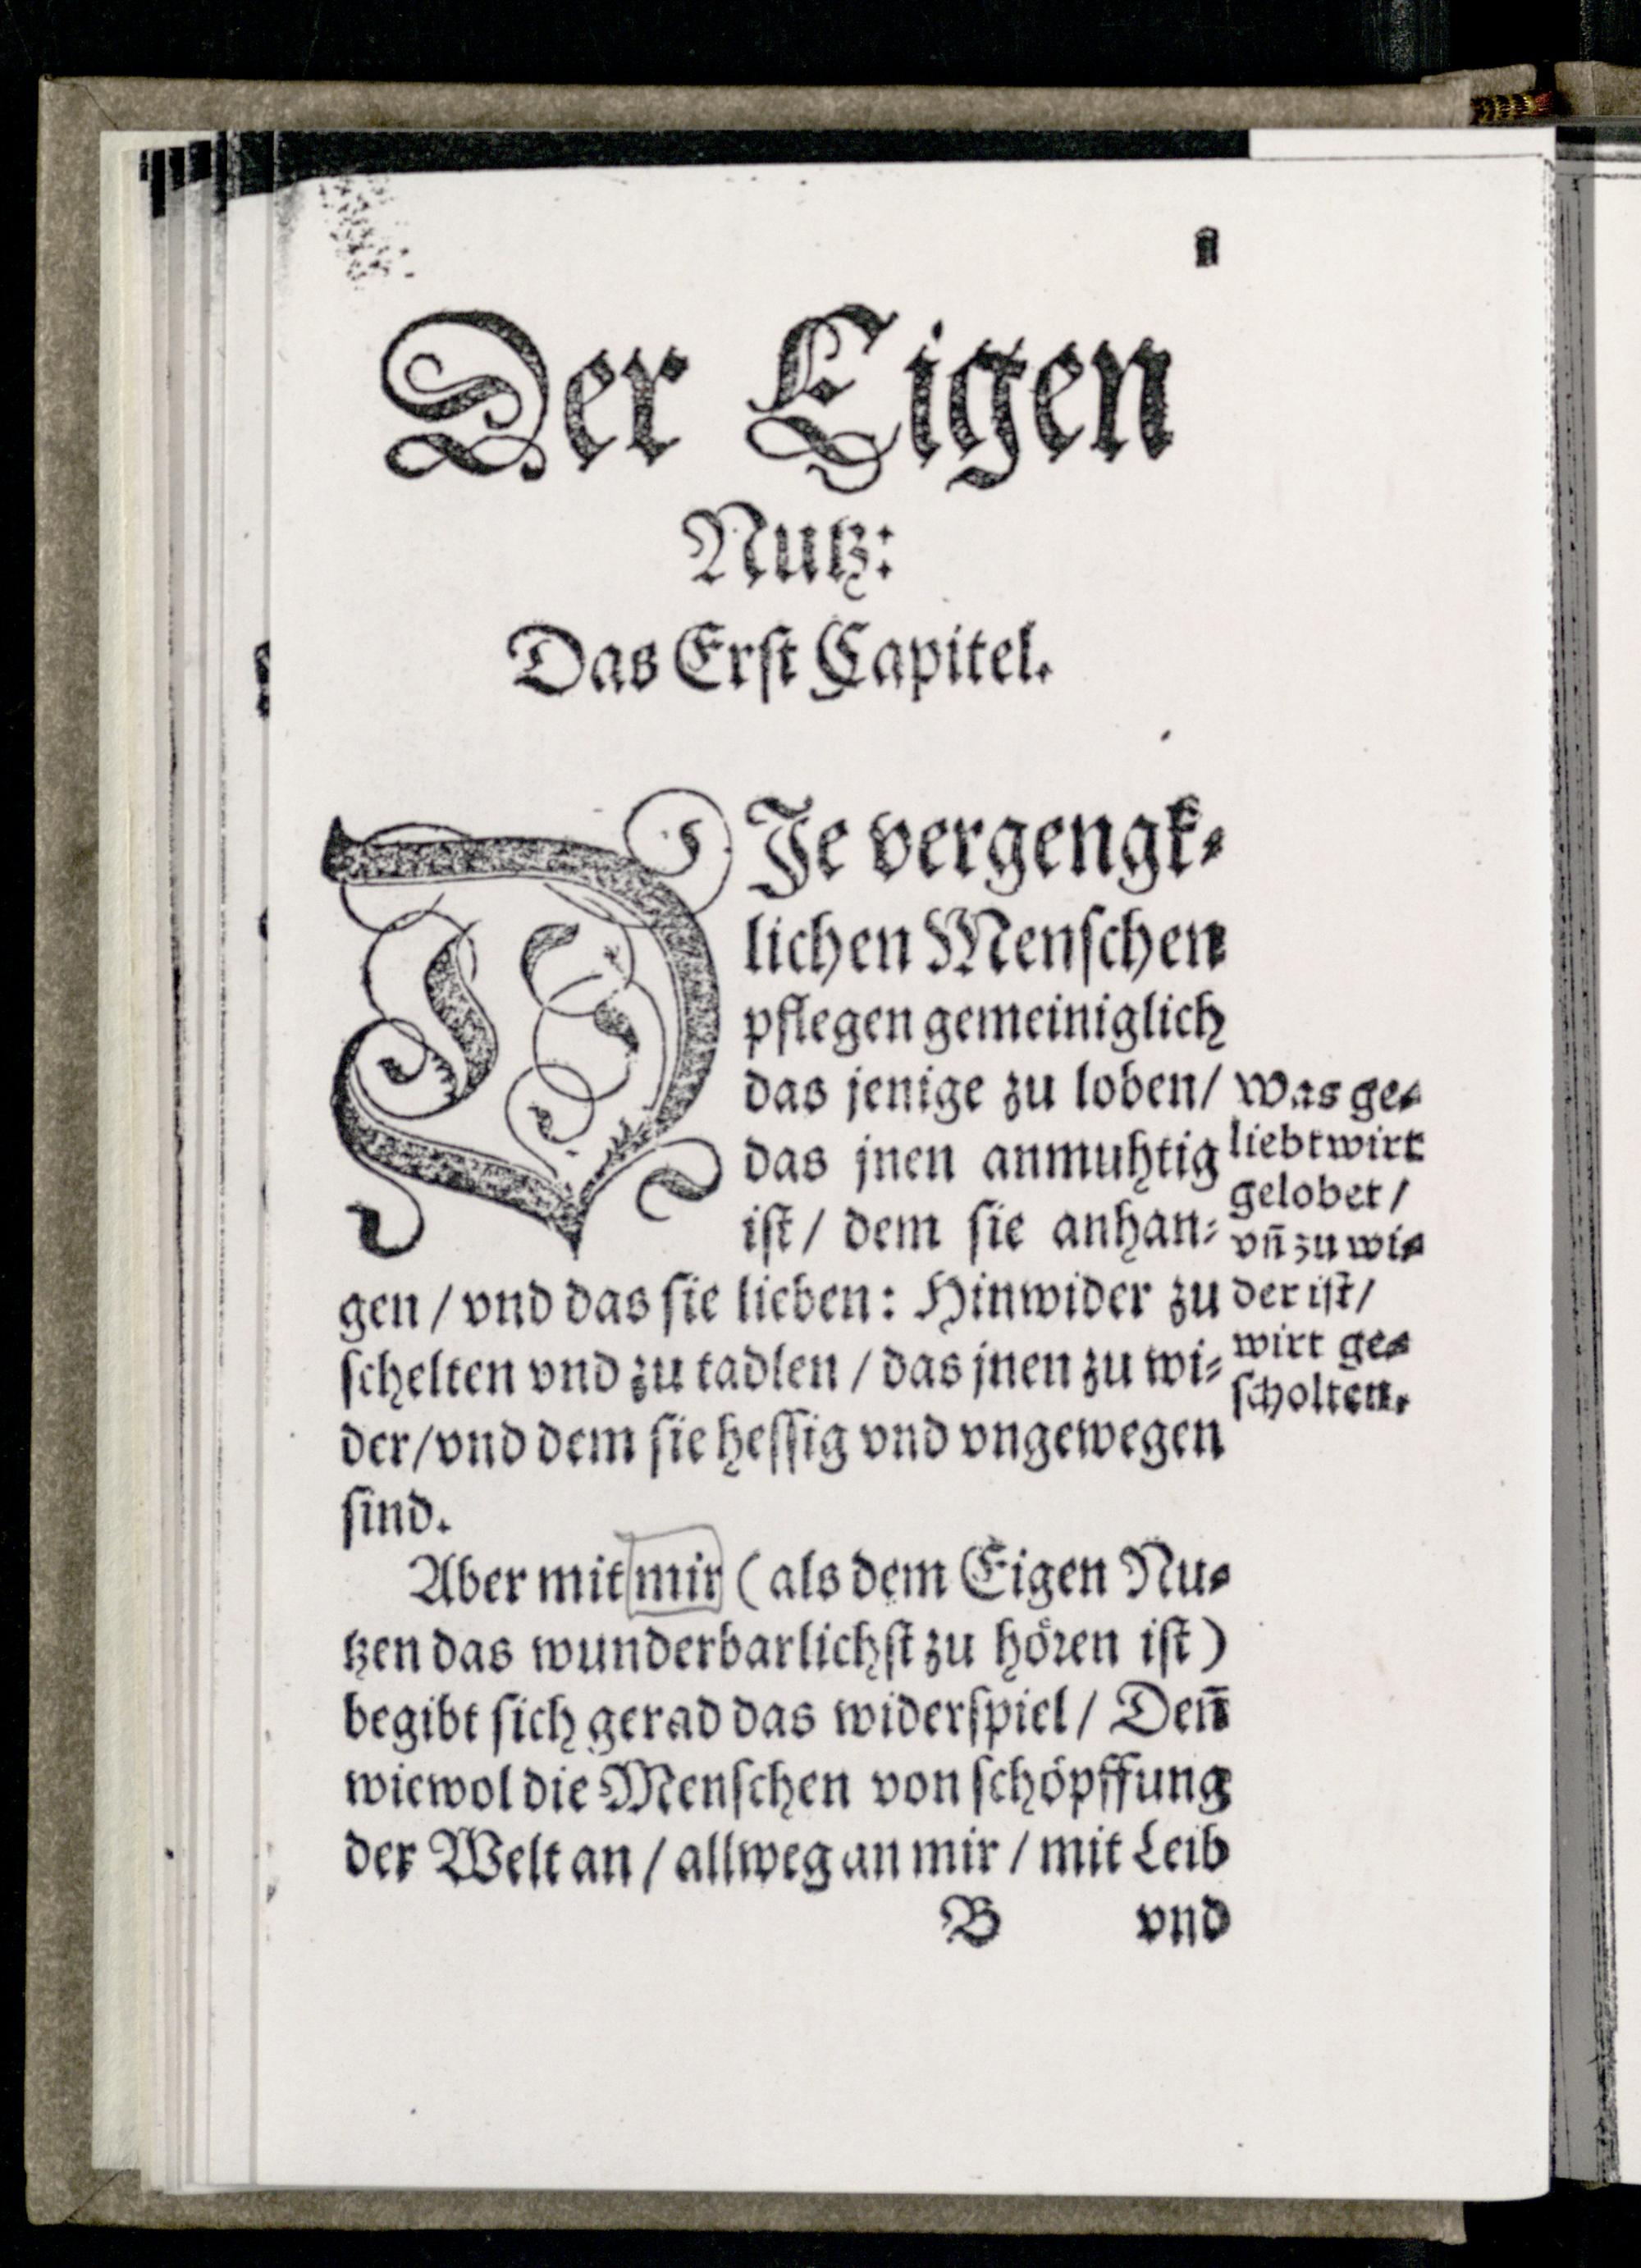 1
Der Eigen
Nutz:
Das Erſt Capitel.
DJe vergengk⸗
lichen Menſchen
pflegen gemeiniglich
das jenige zu loben/
das jnen anmuhtig
iſt/ dem ſie anhan⸗
gen/ vnd das ſie lieben: Hinwider zu
ſchelten vnd zu tadlen/ das jnen zu wi⸗
der/ vnd dem ſie heſſig vnd vngewegen
ſind.
Was ge⸗
liebt wirt
gelobet/
vñ zu wi⸗
der iſt/
wirt ge⸗
ſcholten.
Aber mit mir (als dem Eigen Nu⸗
tzen das wunderbarlichſt zu hören iſt)
begibt ſich gerad das widerſpiel/ Deñ
wiewol die Menſchen von ſchöpffung
der Welt an/ allweg an mir/ mit Leib
B vnd